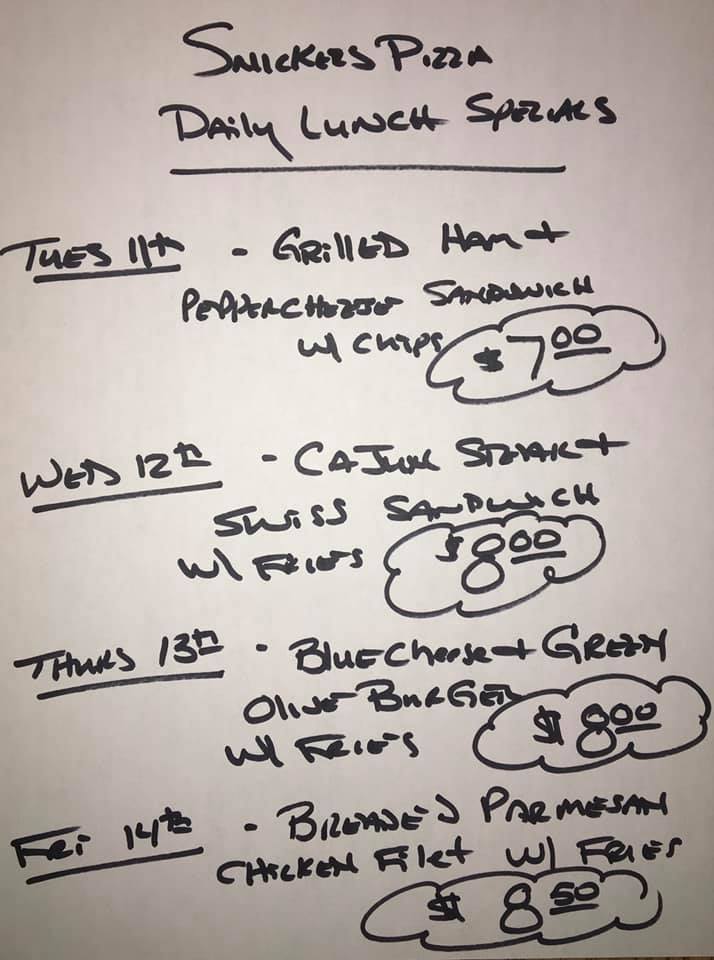 Snickers Pizza
Daily Lunch Specials
Tues 11th - Grilled Ham +
Peppercheese Sandwich
w/ Chips $7.00
Wed 12th - Cajun Steak +
Swiss Sandwich
w/ Fries $8.00
Thurs 13th - Blue Cheese + Green
Olive Burger
w/ Fries $8.00
Fri 14th - Breaded Parmesan
Chicken Filet w/ Fries
$8.50